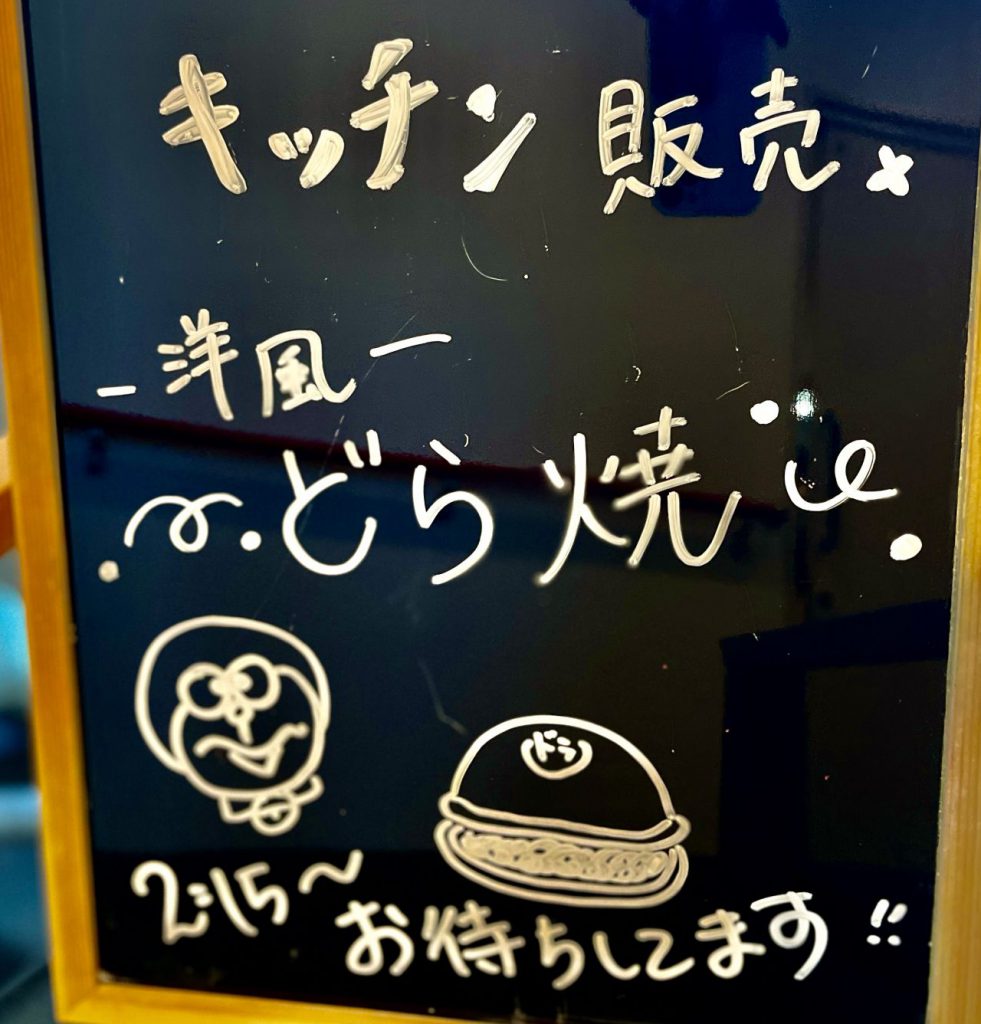 キッチン販売
-洋風-
どら焼
ドラ
2:15〜
お待ちしてます!!